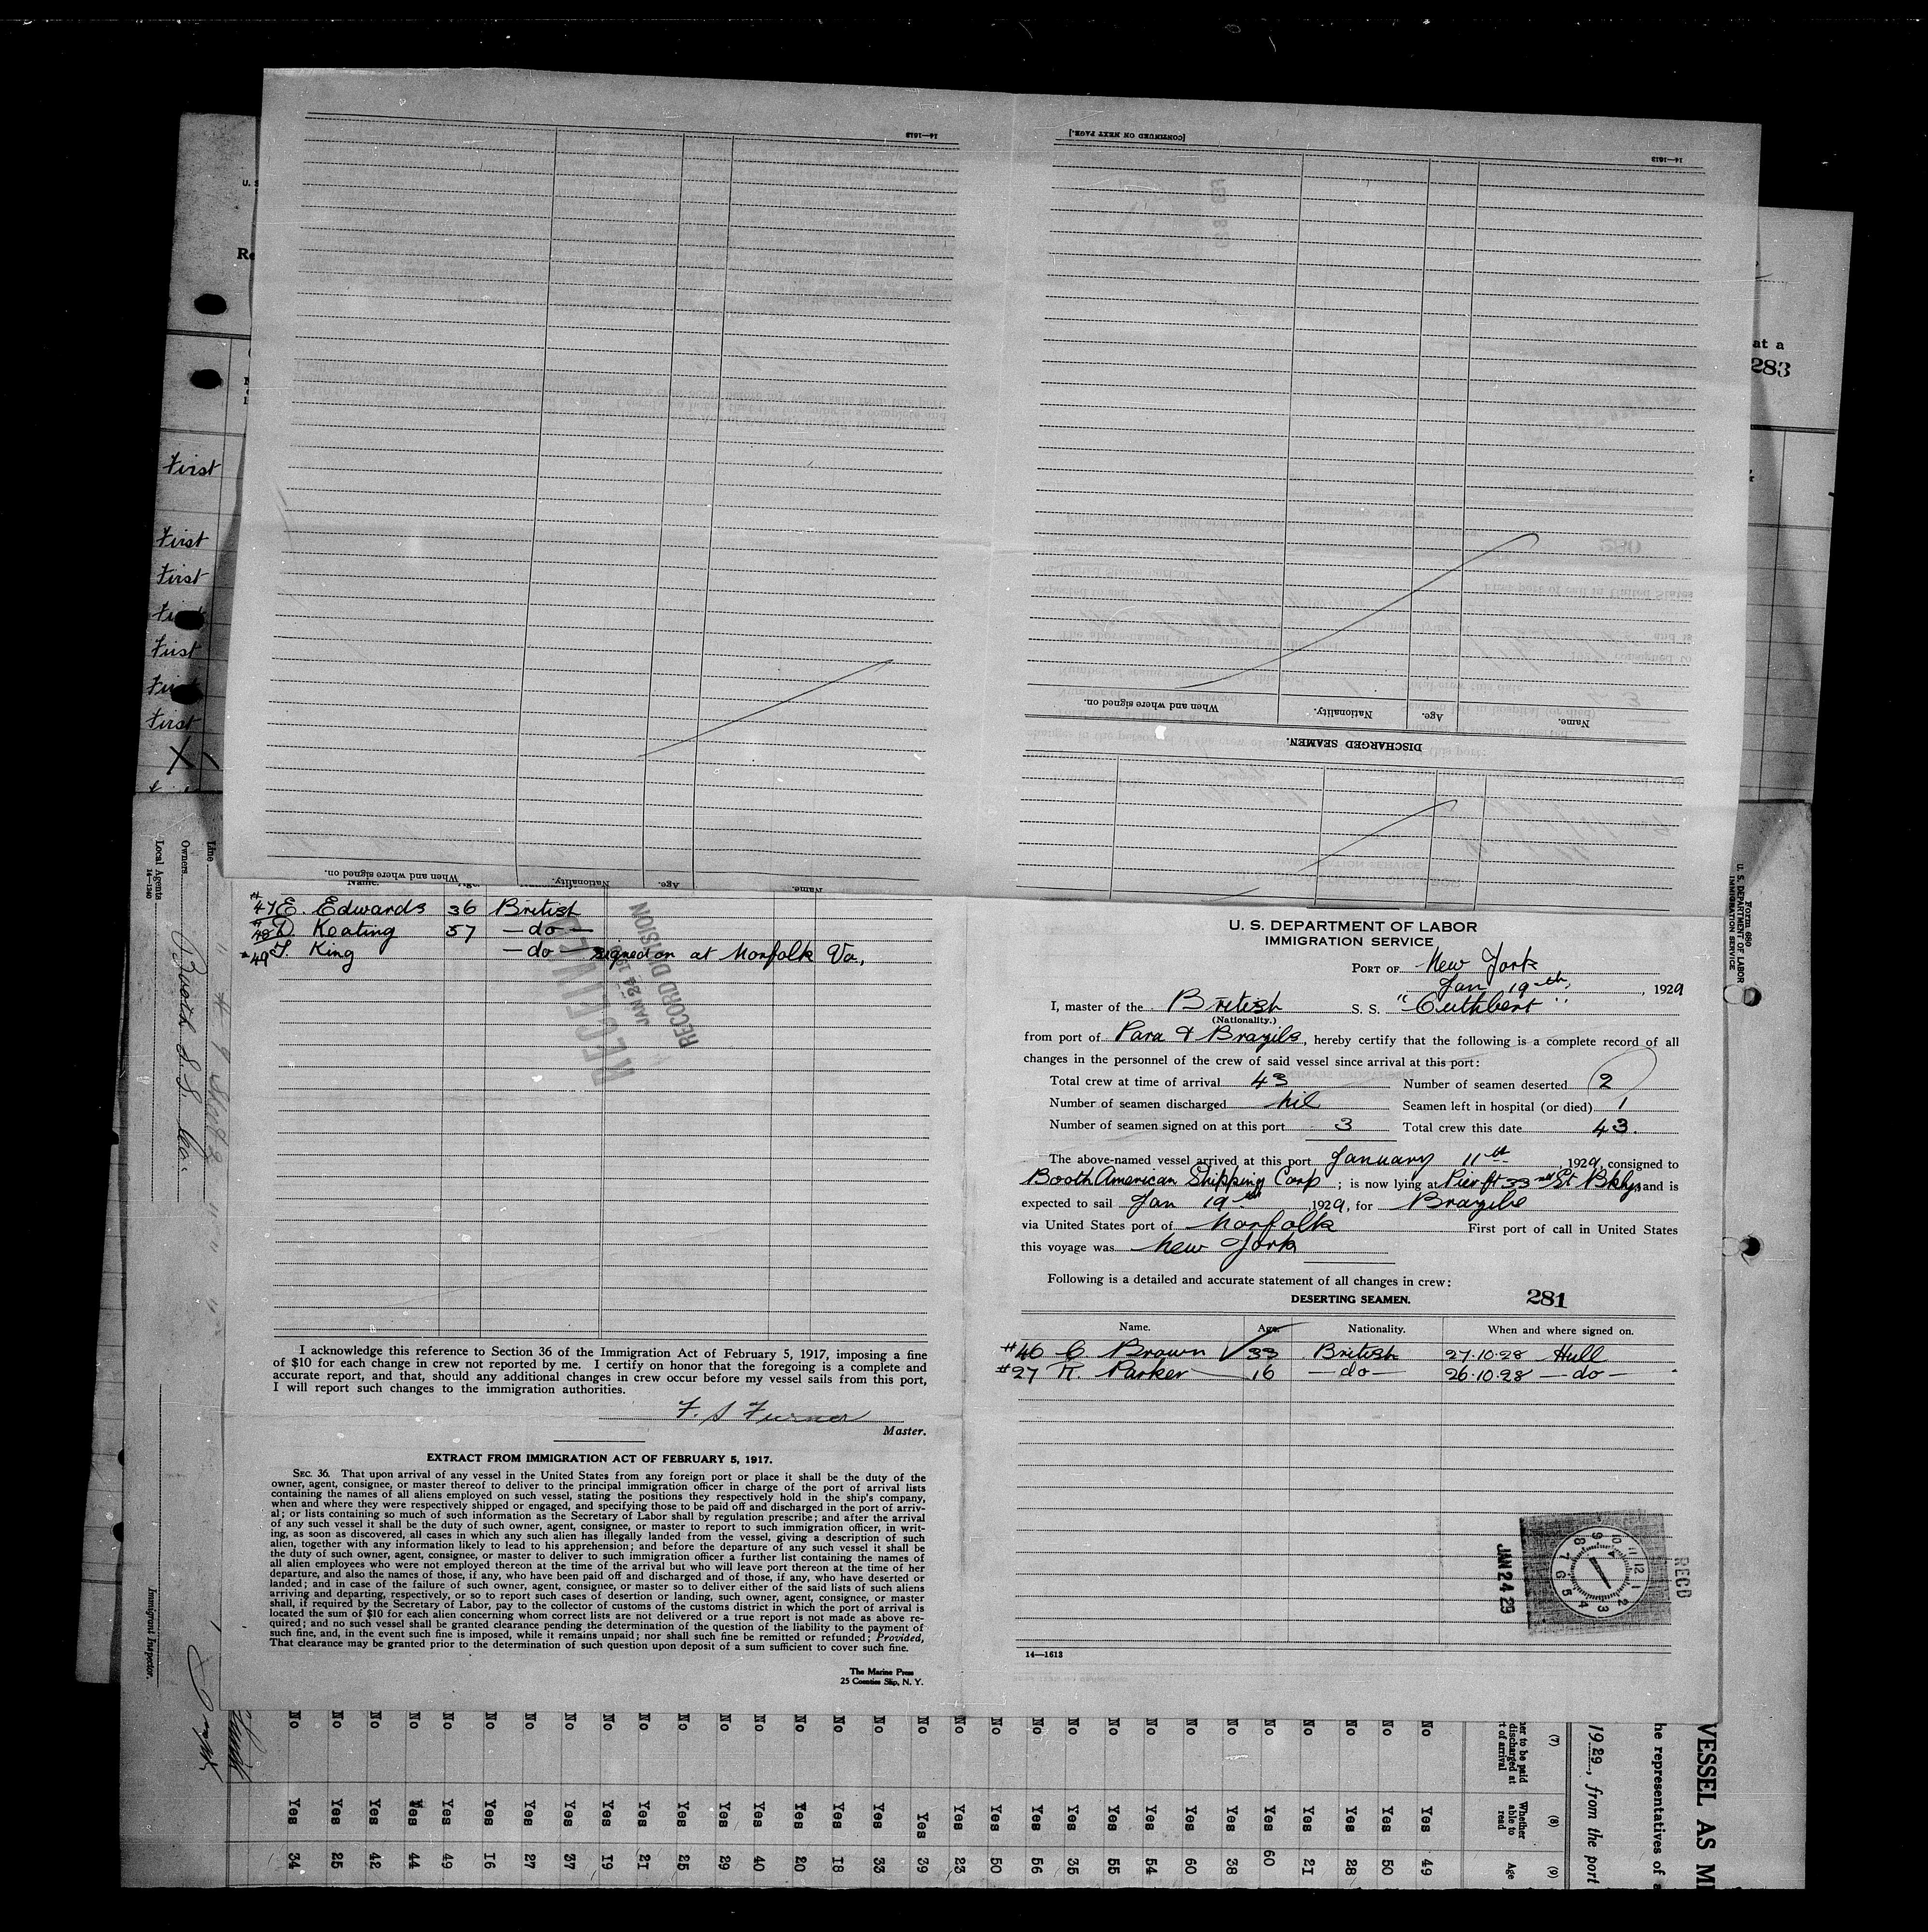 14—1613
[CONTINUED ON NEXT PAGE.]
14—1613
When and where signed on.
Nationality.
Age.
Name.
DISCHARGED SEAMEN.
When and where signed on.
Nationality.
Age.
Name.
at a
283
First
First
First
First
First
U. S. DEPARTMENT OF LABOR
IMMIGRATION SERVICE
PORT OF New York
Jan 19th, 1929
I, master of the British S. S. "Cuthbert"
(Nationality.)
from port of Para & Brazils, hereby certify that the following is a complete record of all
changes in the personnel of the crew of said vessel since arrival at this port:
Total crew at time of arrival 43 Number of seamen deserted 2
Number of seamen discharged nil Seamen left in hospital (or died) 1
Number of seamen signed on at this port 3 Total crew this date 43.
The above-named vessel arrived at this port January 11th, 1929, consigned to
Booth American Shipping Corp; is now lying at Pier ft 33rd St Bklyn and is
expected to sail Jan 19th 1929, for Brazils
via United States port of Norfolk First port of call in United States
this voyage was New York
Following is a detailed and accurate statement of all changes in crew:
DESERTING SEAMEN. 281
Name. Age. Nationality. When and where signed on.
#46 C Brown 33 British 27.10.28 Hull
#27 R. Parker 16 —do— 26.10.28 —do—
RECD
JAN 24 29
14—1613
Name. Age.
#47 E. Edwards 36 British
#48 D. Keating 57 —do—
#49 T. King —do— signed on at Norfolk Va,
RECEIVED
JAN 24
RECORD DIVISION
I acknowledge this reference to Section 36 of the Immigration Act of February 5, 1917, imposing a fine
of $10 for each change in crew not reported by me. I certify on honor that the foregoing is a complete and
accurate report, and that, should any additional changes in crew occur before my vessel sails from this port,
I will report such changes to the immigration authorities.
Master.
EXTRACT FROM IMMIGRATION ACT OF FEBRUARY 5, 1917.
SEC. 36. That upon arrival of any vessel in the United States from any foreign port or place it shall be the duty of the
owner, agent, consignee, or master thereof to deliver to the principal immigration officer in charge of the port of arrival lists
containing the names of all aliens employed on such vessel, stating the positions they respectively hold in the ship's company,
when and where they were respectively shipped or engaged, and specifying those to be paid off and discharged in the port of arriv-
al; or lists containing so much of such information as the Secretary of Labor shall by regulation prescribe; and after the arrival
of any such vessel it shall be the duty of such owner, agent, consignee, or master to report to such immigration officer, in writ-
ing, as soon as discovered, all cases in which any such alien has illegally landed from the vessel, giving a description of such
alien, together with any information likely to lead to his apprehension; and before the departure of any such vessel it shall be
the duty of such owner, agent, consignee, or master to deliver to such immigration officer a further list containing the names of
all alien employees who were not employed thereon at the time of the arrival but who will leave port thereon at the time of her
departure, and also the names of those, if any, who have been paid off and discharged and of those, if any, who have deserted or
landed; and in case of the failure of such owner, agent, consignee, or master so to deliver either of the said lists of such aliens
arriving and departing, respectively, or so to report such cases of desertion or landing, such owner, agent, consignee, or master
shall, if required by the Secretary of Labor, pay to the collector of customs of the customs district in which the port of arrival is
located the sum of $10 for each alien concerning whom correct lists are not delivered or a true report is not made as above re-
quired; and no such vessel shall be granted clearance pending the determination of the question of the liability to the payment of
such fine, and, in the event such fine is imposed, while it remains unpaid; nor shall such fine be remitted or refunded; Provided,
That clearance may be granted prior to the determination of such question upon deposit of a sum sufficient to cover such fine.
The Marine Press
25 Coenties Slip, N. Y.
Form 680
U. S. DEPARTMENT OF LABOR
IMMIGRATION SERVICE
Line
Owners Booth S.S. Co.
Local Agents
14—1240
Immigrant Inspector.
VESSEL AS M
he representatives of a
1929, from the port
(7) (8) (9)
her to be paid discharged at t of arrival
Whether able to read
Age
No Yes 49
No Yes 50
No Yes 28
No Yes 21
No Yes 60
No Yes 38
No Yes 60
No Yes 54
No Yes 55
No Yes 35
No Yes 56
No Yes 50
No Yes 23
No Yes 39
No Yes 33
No Yes 18
No Yes 20
No Yes 40
No Yes 29
No Yes 25
No Yes 21
No Yes 19
No Yes 37
No Yes 27
No Yes 16
No Yes 49
No Yes 44
No Yes 42
No Yes 25
No Yes 34